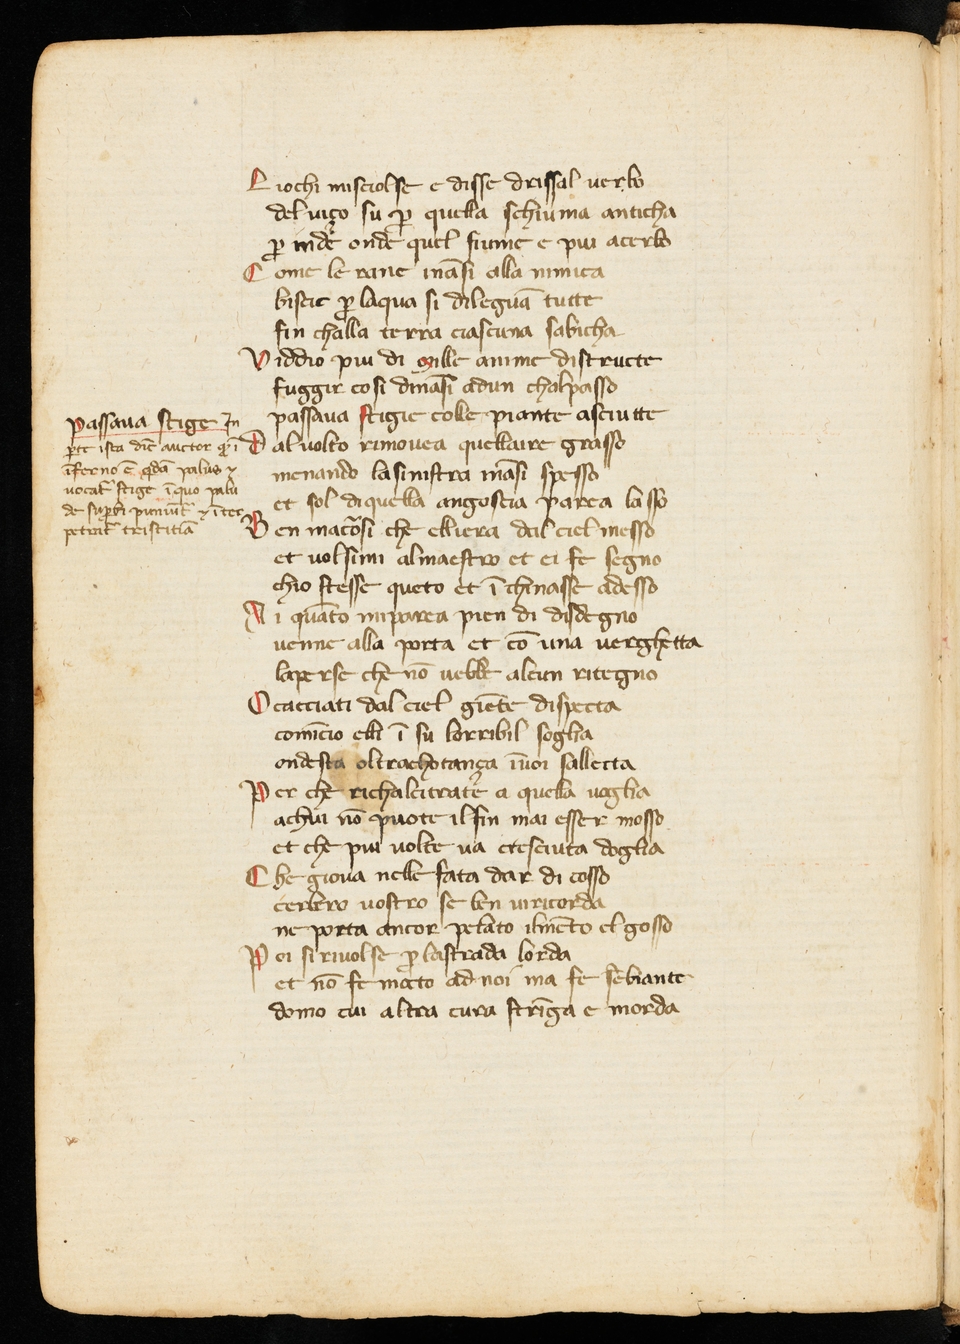 Liochi misciolse e disse drissal uerbo
del uiço su ꝑ quella schiuma anticha
ꝑ indè onde quel fiume e piu acerbo
Come le rane inãsi alla nimica
biscie ꝑ laqua si dileguã tutte
fin challa terra ciascuna sabicha
Viddio piu di mille anime distructe
fuggir cosi dinãsi adun chalpasso
passaua stigie colle piante asciutte
Dal uolto rimouea quellaire grasso
menando lasinistra inãsi spesso
et sol diquella angoscia parea lasso
Ben macõsi che elliera dal ciel messo
et uolsimi almaestro et ei fe segno
chio stesse queto et ĩchinasse adesso
Ai quãto miparea pien di disdegno
uenne alla porta et cõ una verghetta
laperse che nõ uebbe alcun ritegno
O cacciati dal ciel giẽte dispecta
comĩcio elli ĩ su lorribil soglia
ondesta oltrachotança ĩuoi sallecta
Per che richalcitrate a quella uoglia
achui nõ puote ilfin mai esser mosso
et che piu uolte ua cresciuta doglia
Che gioua nelle fata dar di cosso
cerbero uostro se ben uiricorda
ne porta ancor pelato ilmẽto el gosso
Poi si riuolse ꝑ lastrada lorda
et nõ fe motto ad noi ma fe sẽbiante
domo cui altra cura strĩga e morda
passaua stige In
ꝑte ista dic̃ auctor ꝙ ĩ
ĩferno ẽ q̃dã palus ⁊
uocat̃ stige ĩ quo palu
de suꝑbi puniũt̃ ⁊ ĩter
petrat̃ tristitiã